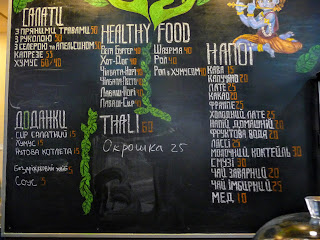 САЛАТИ
З ПРЯНИМИ ТРАВАМИ 50
З РУКОЛОЮ 50
З СЕЛЕРОЮ ТА АПЕЛЬСИНОМ
КАПРЕЗЕ 55
ХУМУС 60/40
ДОДАНКИ
СИР САЛАТНИЙ 15
ХУМУС 15
НУТОВА КОТЛЕТА 15
5
Соус 5
HEALTHY FOOD
ВЕГ БУРГЕР 40
ХОТ-ДОГ 40
ЧІБАТИ
ЧІБАТИ
ЛАВАШ
ЛАВАШ-СИР
ШАУРМА 40
РОЛ 40
РОЛ З ХУМУСОМ 40
THALI 60
Окрошка 25
НАПОЇ
КАВА 15
КАПУЧИНО 20
ЛАТЕ 25
КАКАО 20
ФРАППЕ 25
ХОЛОДНИЙ ЛАТЕ 25
НАПІЙ ДОМАШНІЙ 20
ФРУКТОВА ВОДА 20
ЛАССІ 25
МОЛОЧНИЙ КОКТЕЙЛЬ 30
СМУЗІ 30
ЧАЙ ЗАВАРНИЙ 20
ЧАЙ ІМБИРНИЙ 25
МЕД 10